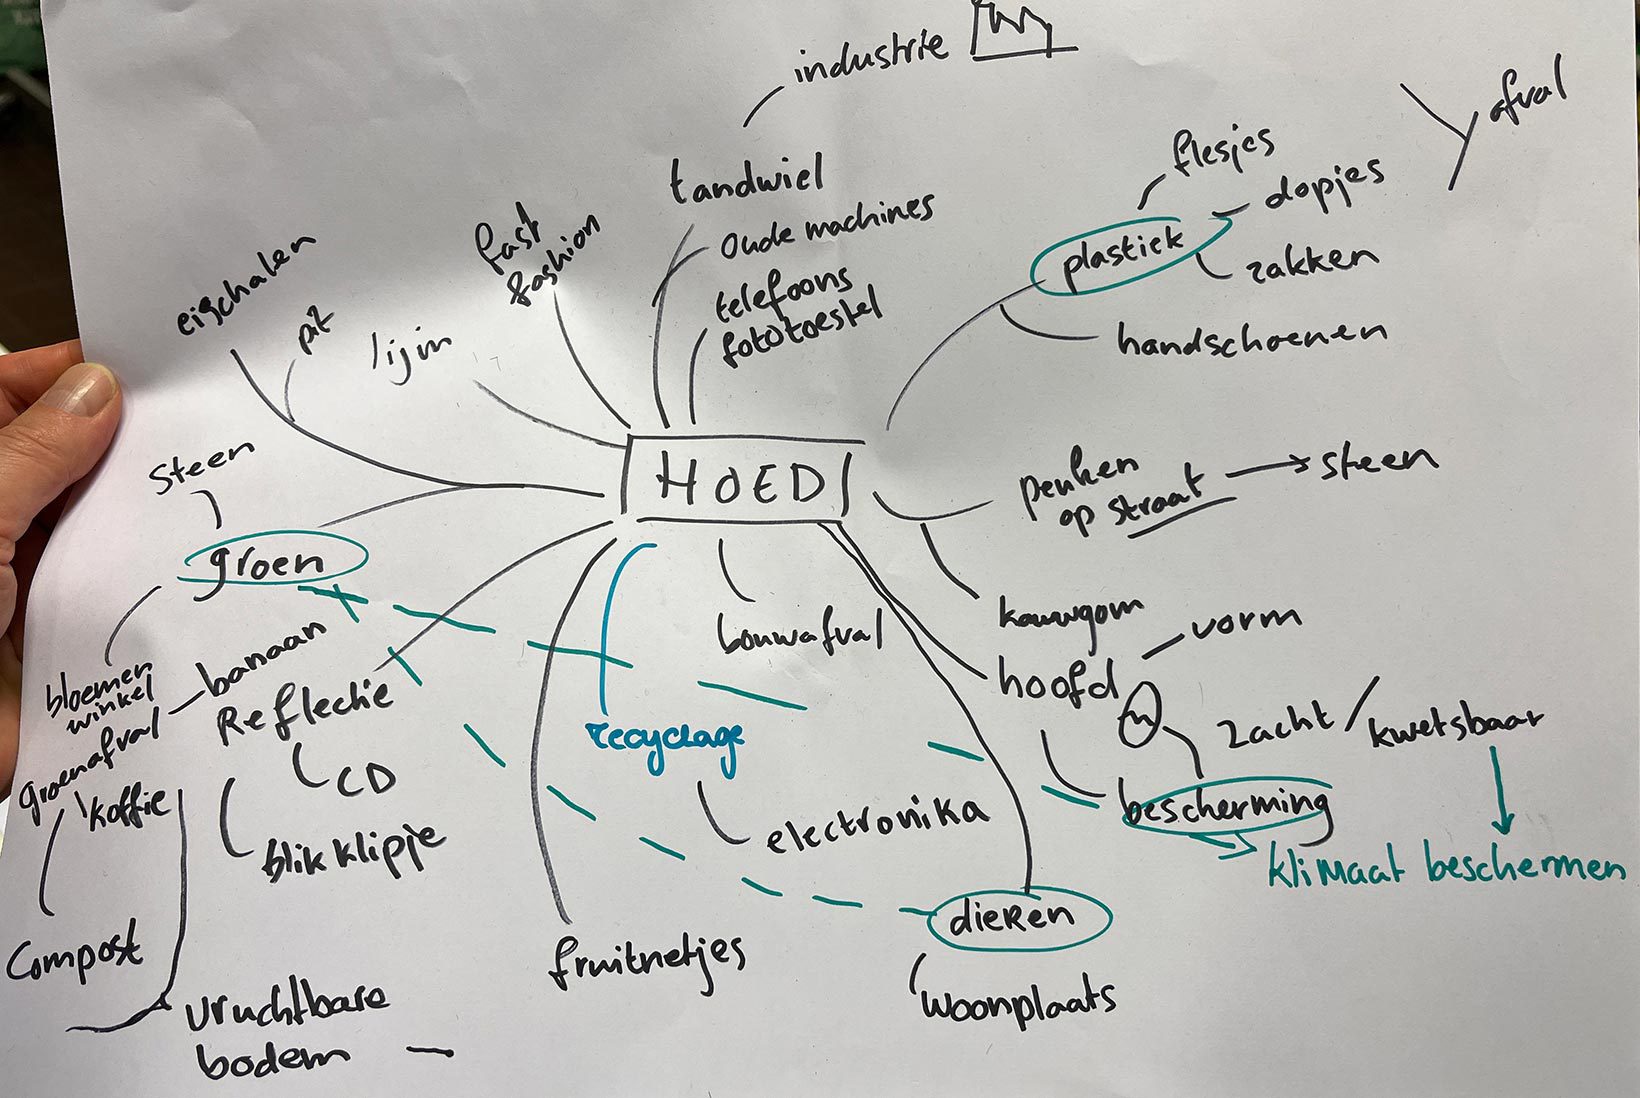 industrie
afval
flesjes
tandwiel
dopjes
oude machines
fast
fashion
plastiek
zakken
eischalen
telefoons
fototoestel
pit
lijm
handschoenen
HOED
steen
peuken
op straat
steen
groen
kauwgom
bouwafval
vorm
banaan
hoofd
bloemen
winkel
Reflectie
zacht / kwetsbaar
recyclage
groenafval
CD
koffie
bescherming
electronika
blik klipje
klimaat beschermen
dieren
compost
fruitnetjes
woonplaats
vruchtbare
bodem